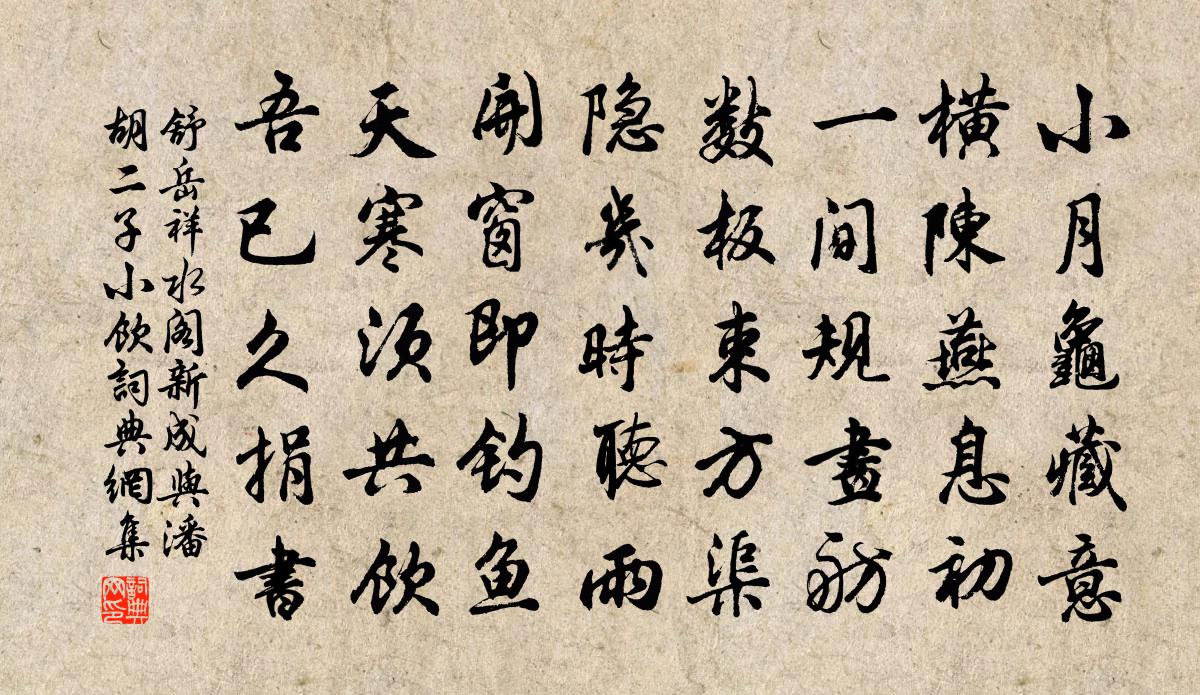 小月龜藏意
横陳燕息初
一间规畫舫
数板束方渠
隐幾時聽雨
開窗即钓鱼
天寒须共饮
吾已久捐書
舒岳祥水阁新成與潘
胡二子小饮詞典網集
詞典
网印